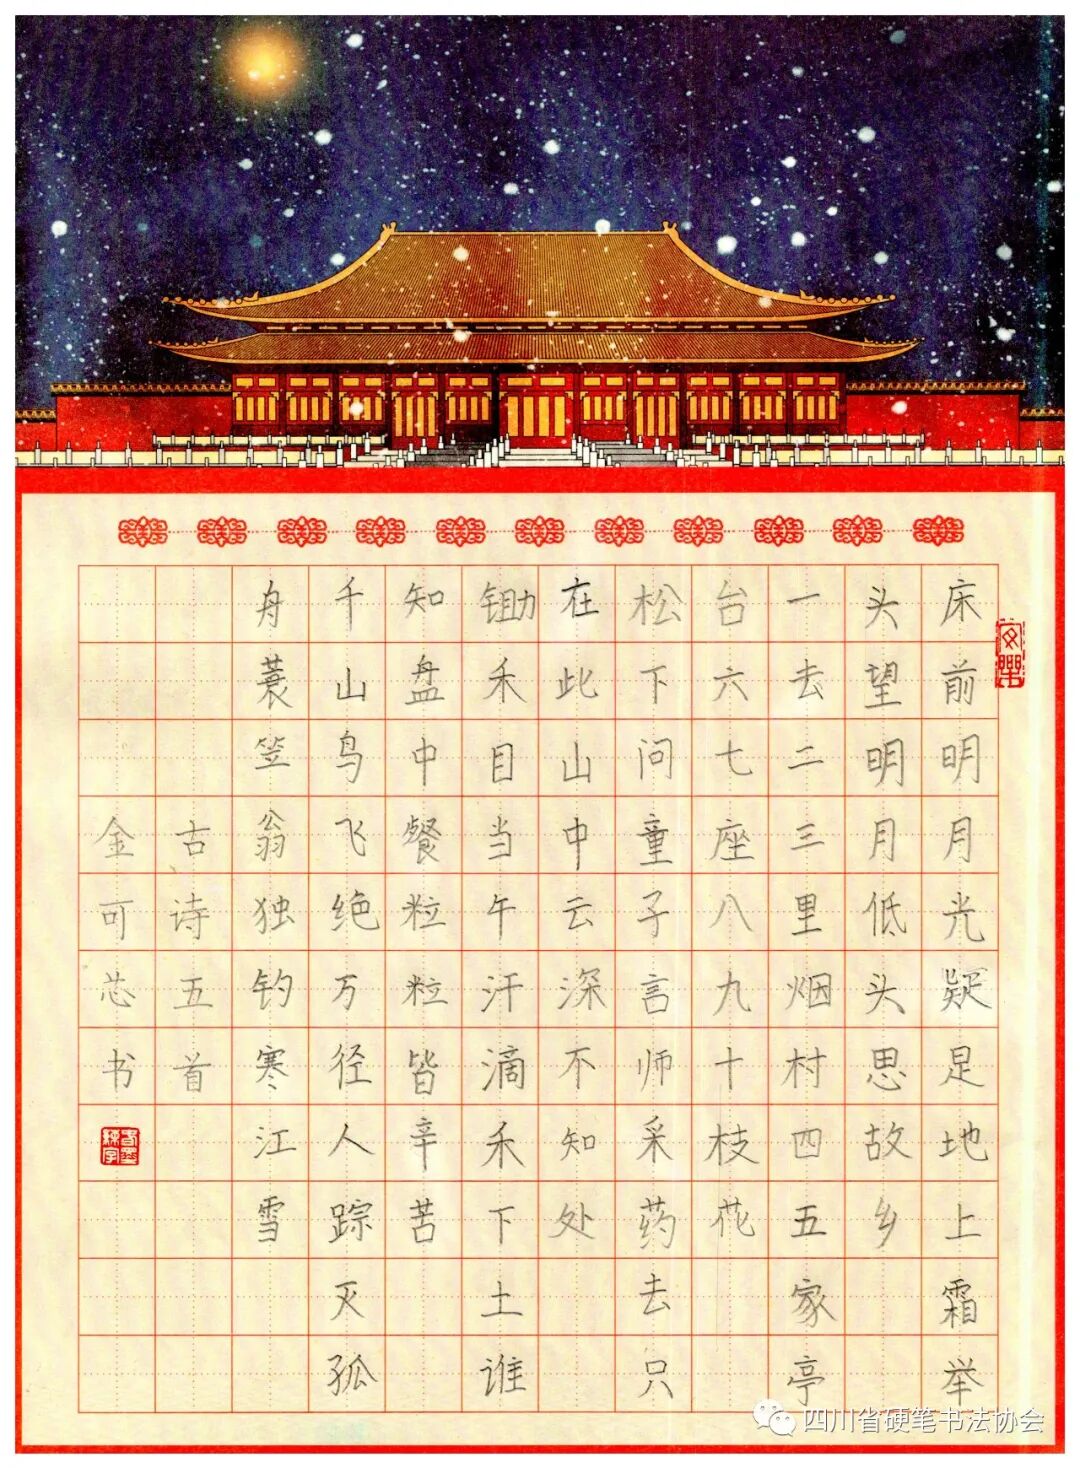 床前明月光疑足地上霜举
头望明月低头思故乡
一去二三里烟村四五家亭
台六七座八九十枝花
松下问童子言师采药去只
在此山中云深不知处
锄禾目当午汗滴禾下土谁
知盘中餐粒粒皆辛苦
千山鸟飞绝万径人踪灭孤
舟蓑笠翁独钓寒江雪
古诗五首
金可芯书
四川省硬笔书法协会